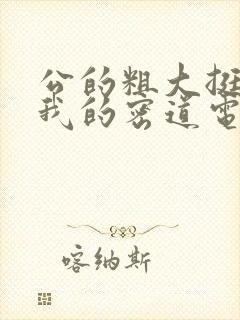 公的粗大挺
我的密道电
喀纳斯